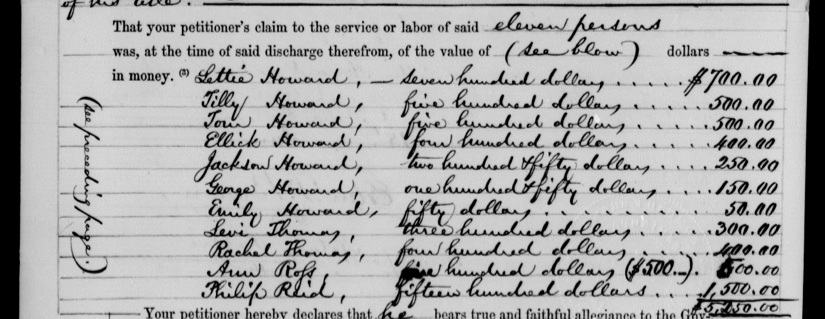 of his title.
That your petitioner's claim to the service or labor of said eleven persons
was, at the time of said discharge therefrom, of the value of (see blow) dollars
in money. (3) Lettie Howard, — seven hundred dollars, .... $700.00
Tilly Howard, five hundred dollars, .... 500.00
Tom Howard, five hundred dollars, .... 500.00
Ellick Howard, four hundred dollars, .... 400.00
Jackson Howard, two hundred & fifty dollars, .... 250.00
George Howard, one hundred & fifty dollars, .... 150.00
Emily Howard, fifty dollars, ........ 50.00
Levi Thomas, three hundred dollars, .... 300.00
Rachel Thomas, four hundred dollars, .... 400.00
Ann Ross, five hundred dollars ($500.—). 500.00
Philip Reid, fifteen hundred dollars ... 1,500.00
$5,250.00
(see preceding page.)
Your petitioner hereby declares that he bears true and faithful allegiance to the Gov-